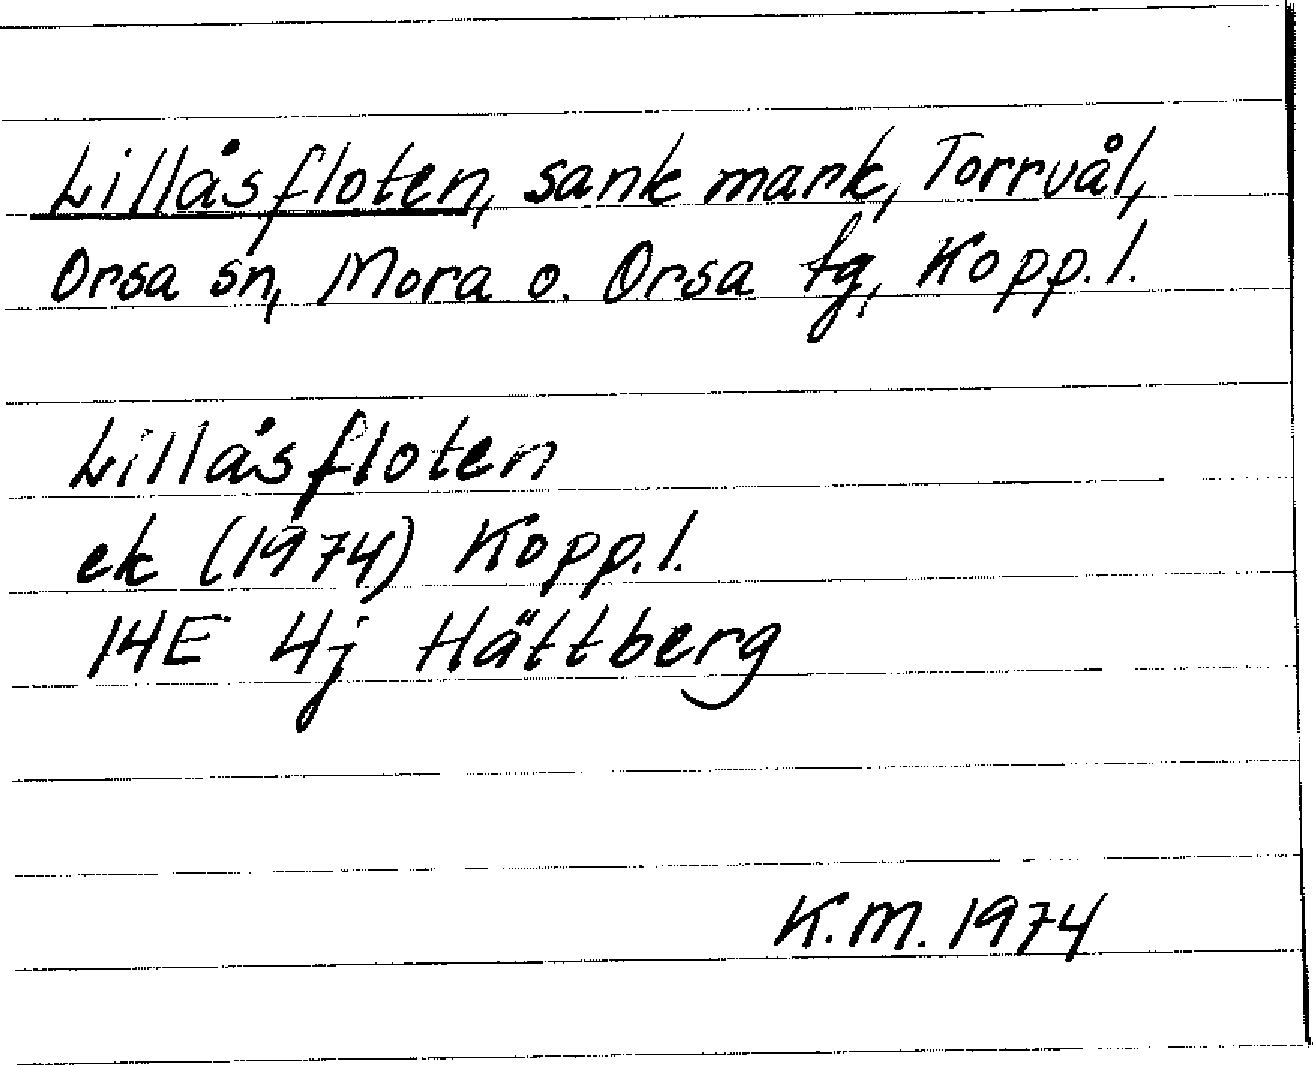 Lillåsfloten, sank mark, Torrvål,
Orsa sn, Mora o. Orsa tg, Kopp. l.
Lillåsfloten
ek (1974) Kopp. l.
14E 4j Hättberg
K.M. 1974